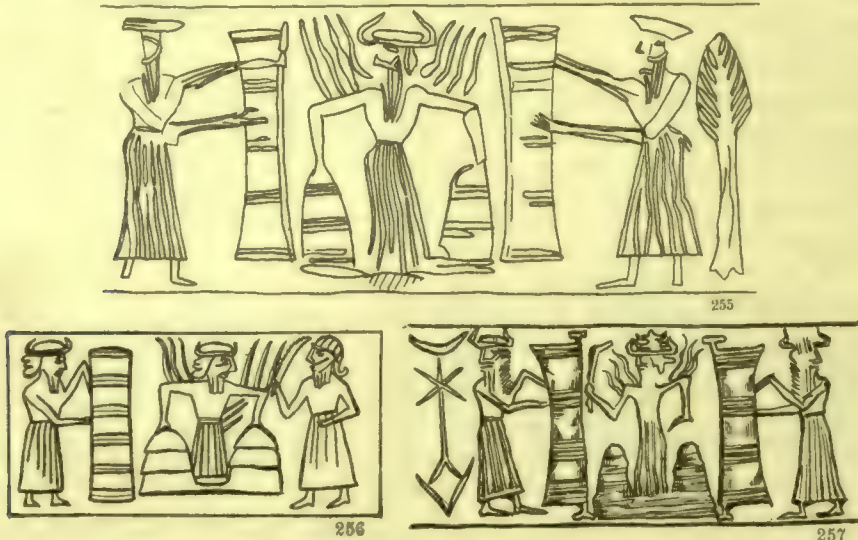 255
256
257